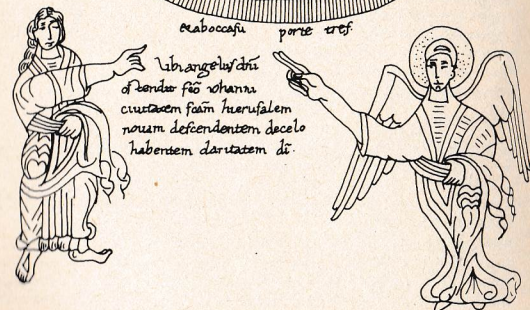 et aboccasu porte tres.
Ubi angelus dni
ostendit sco iohanni
ciuitatem scam hierusalem
nouam descendentem decelo
habentem claritatem di.